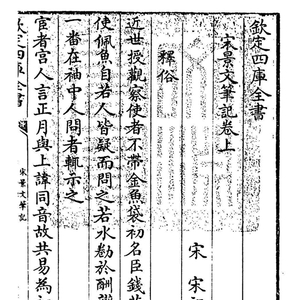 欽定四庫全書
宋景文筆記卷上
宋 宋
釋俗
近世授觀察使者不帶金魚袋初名臣錢
使佩魚自若人皆疑而問之若水勌於酬
一番在袖中人問者輒示之
宦者宮人言正月與上諱同音故共易為
欽定四庫全書
宋景文筆記